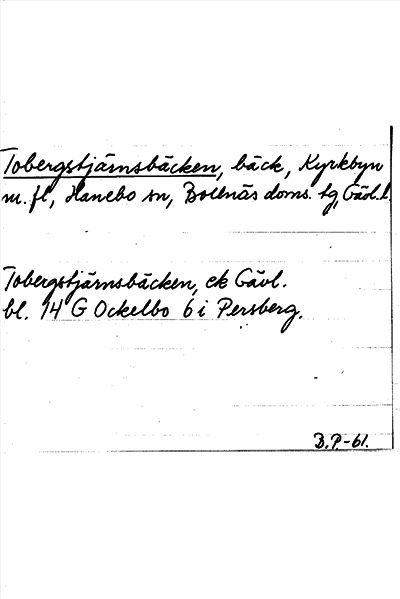 Tobergstjärnsbäcken, bäck, Kyrkbyn
m. fl, Hanebo sn, Bollnäs doms. tg, Gävl. l.
Tobergstjärnsbäcken, ek Gävl.
bl. 14 G Ockelbo 6 i Persberg.
B.P.-61.